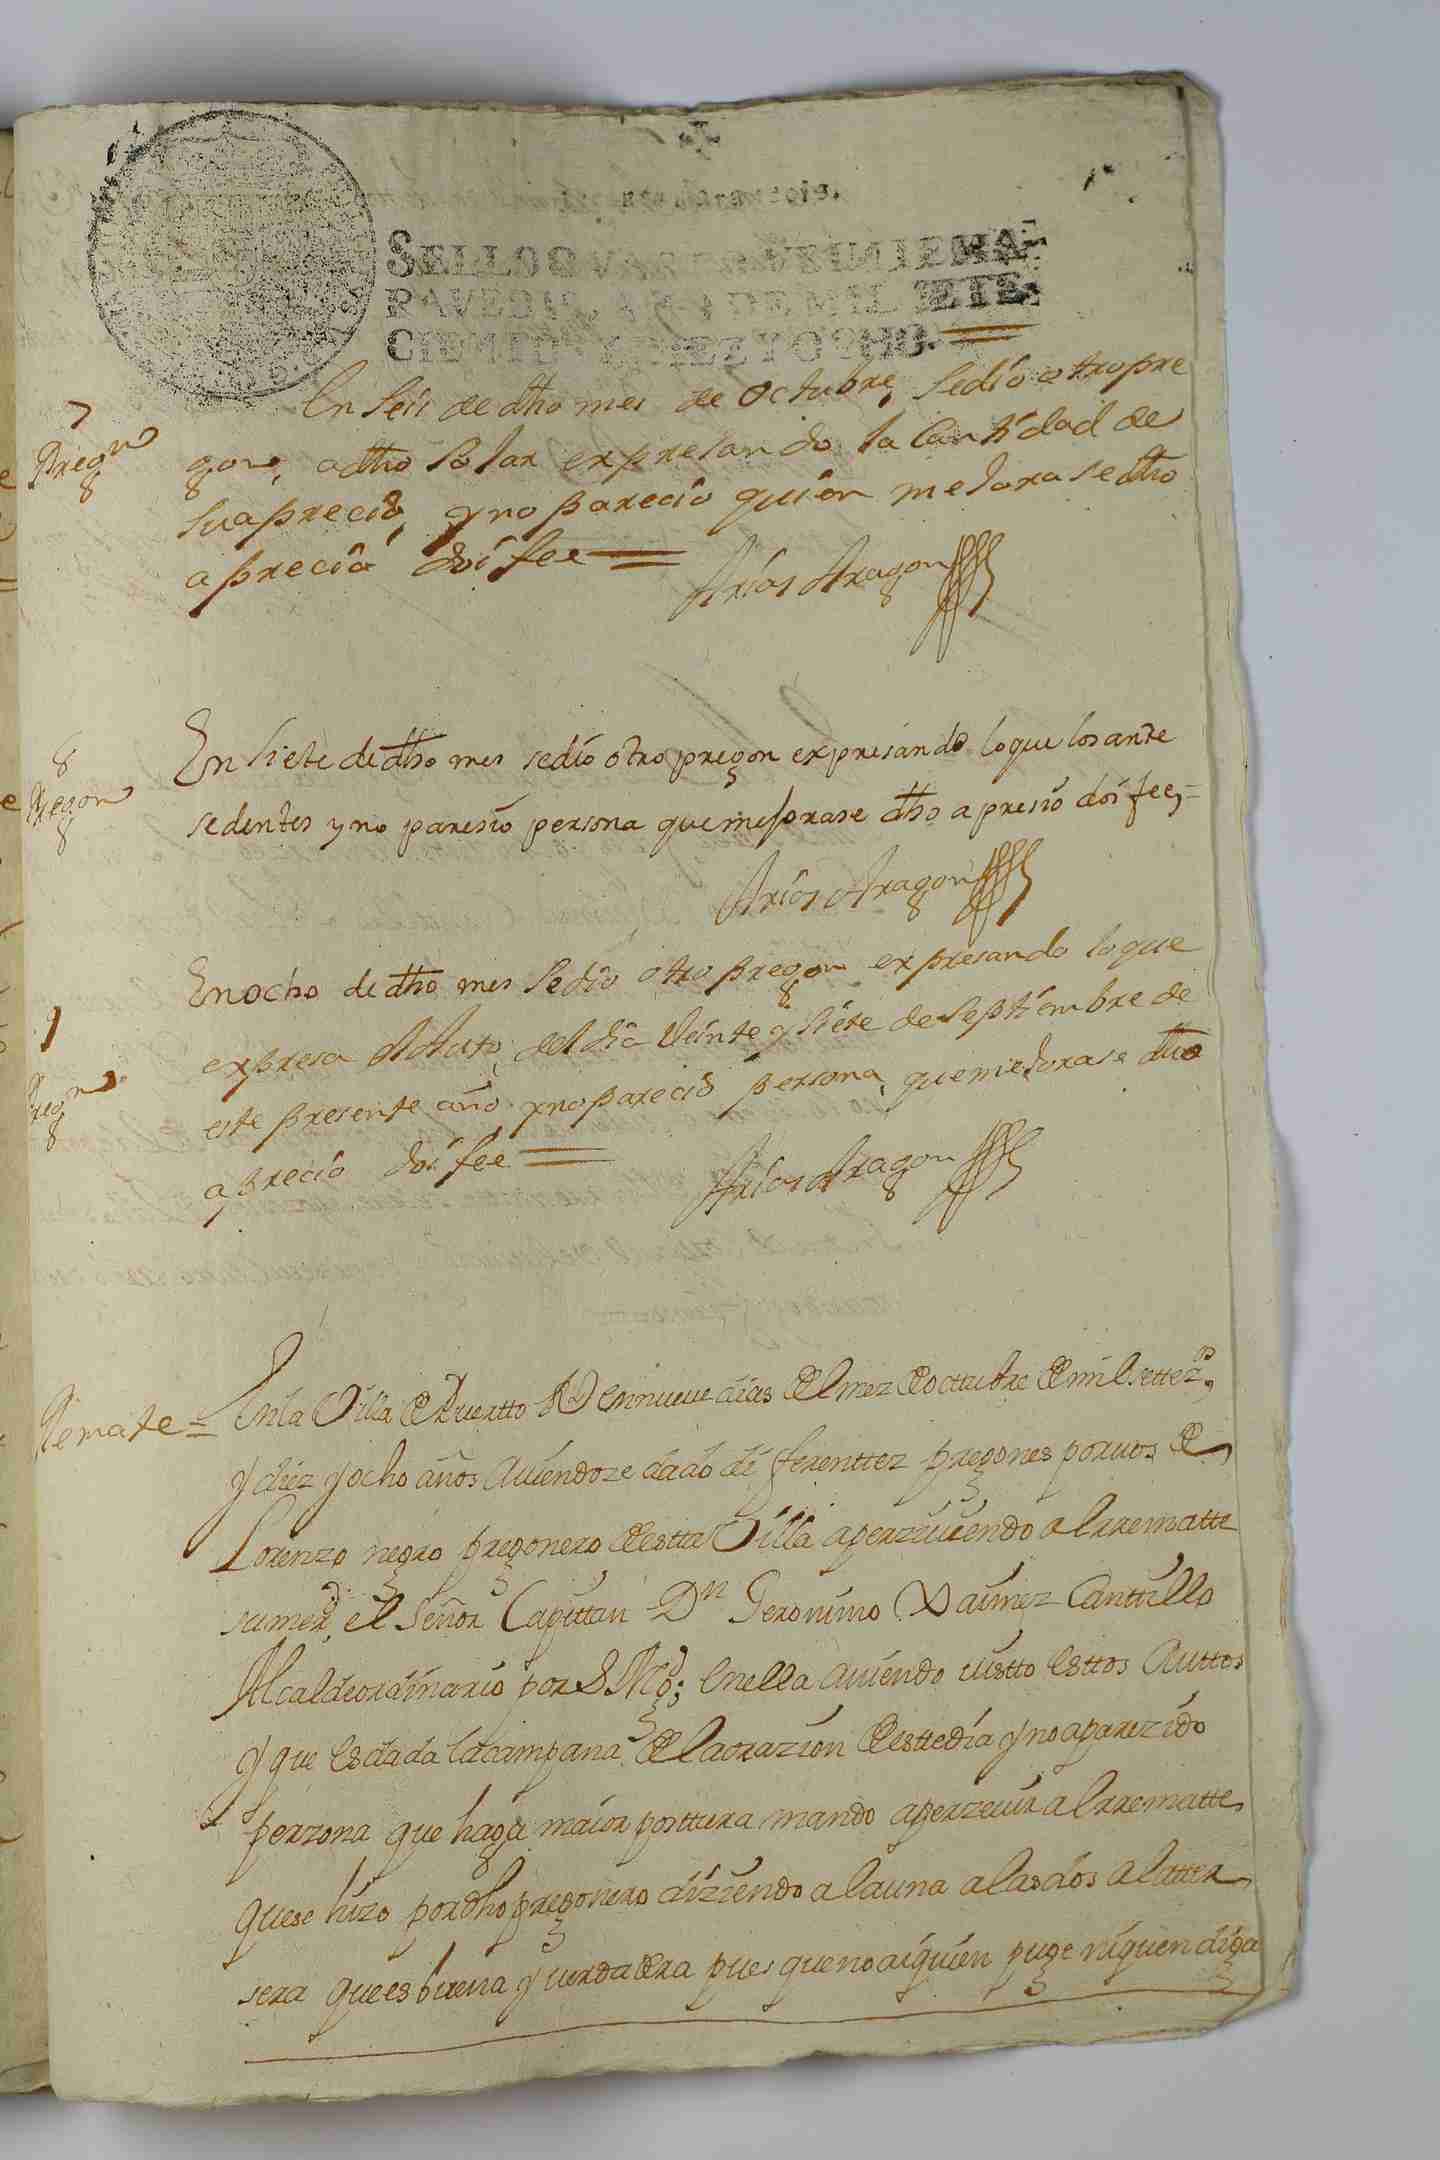 SELLO QVARTO VEINTE MA
RAVEDIS, AÑO DE MIL SETE
CIENTOS Y DIEZ Y OCHO.
7
Pregⁿ
En seis de dho mes de Octubre, sedio otro pre
gon, a dho solar expresando la Cantidad de
su aprecio, y no parecio quien mejorase dho
aprecio doi fee =
Arias Aragon
8
Pregon
En siete de dho mes sedio otro pregon expresando lo que los ante
sedentes y no paresio persona que mejorase dho apresio doi fee, =
Arias Aragon
9
Pregⁿ
En ocho de dho mes sedio otro pregon expresando lo que
expresa el Auto, del dia Veinte y siete de septiembre de
este presente año y no parecio persona, que mejorase dho
aprecio doi fee =
Arias Aragon
Remate =
En la Villa de Puertto Rl en nueve dias del mez de octtubre de mil settezos,
y diez y ocho años aviendoze dado diferenttez pregones por vos de
Lorenzo negro pregonero de estta Villa aperziviendo al rrematte
su merd, el Señor Capittan Dn Geronimo Xaimez Cantillo
Alcalde ordinario por S Mgd; en ella aviendo visto esttos Auttos
y que es dada la campana de la orazion de este dia y no aparezido
perzona que haga maior posttura mando aperzevir al rrematte
que se hizo por dho pregonero diziendo a la una a las dos a la tter
sera que es buena y verdadera pues que no ai quien puje ni quien diga